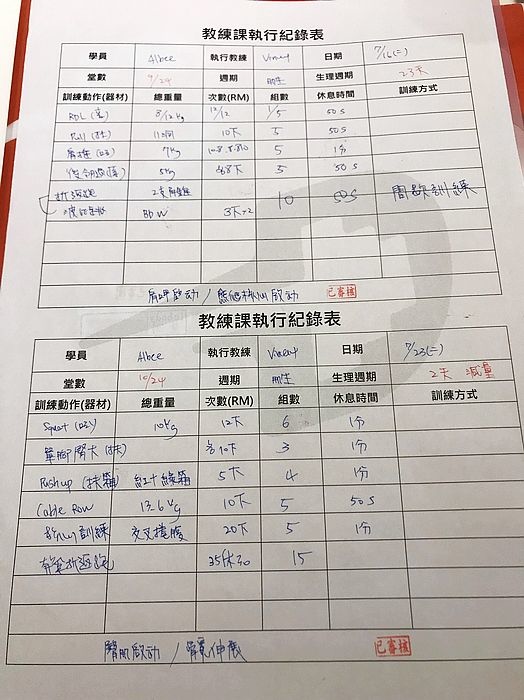 教練課執行紀錄表
學員 Albee 執行教練 Vincent 日期 7/16(二)
堂數 9/24 週期 肌生 生理週期 23天
訓練動作(器材) 總重量 次數(RM) 組數 休息時間 訓練方式
RDL 8/12kg 12/12 5 50s
Pull 10下 5 50s
肩推 7kg 5 1分
5kg 5 50s
折返跑 10 50s 間歇訓練
80w 3下×2
肩胛啟动 / 啟动
已審核
教練課執行紀錄表
學員 Albee 執行教練 Vincent 日期 7/23(二)
堂數 10/24 週期 肌生 生理週期 2天 減量
訓練動作(器材) 總重量 次數(RM) 組數 休息時間 訓練方式
Squat 10kg 12下 6 1分
單腳 (扶) 各10下 3 1分
Push up (扶箱) 紅+綠箱 5下 4 1分
Cable Row 13.6kg 10下 5 50s
核心訓練 交叉捲腹 20下 5 1分
折返跑 35休30 15
臀肌啟动 / 伸展
已審核